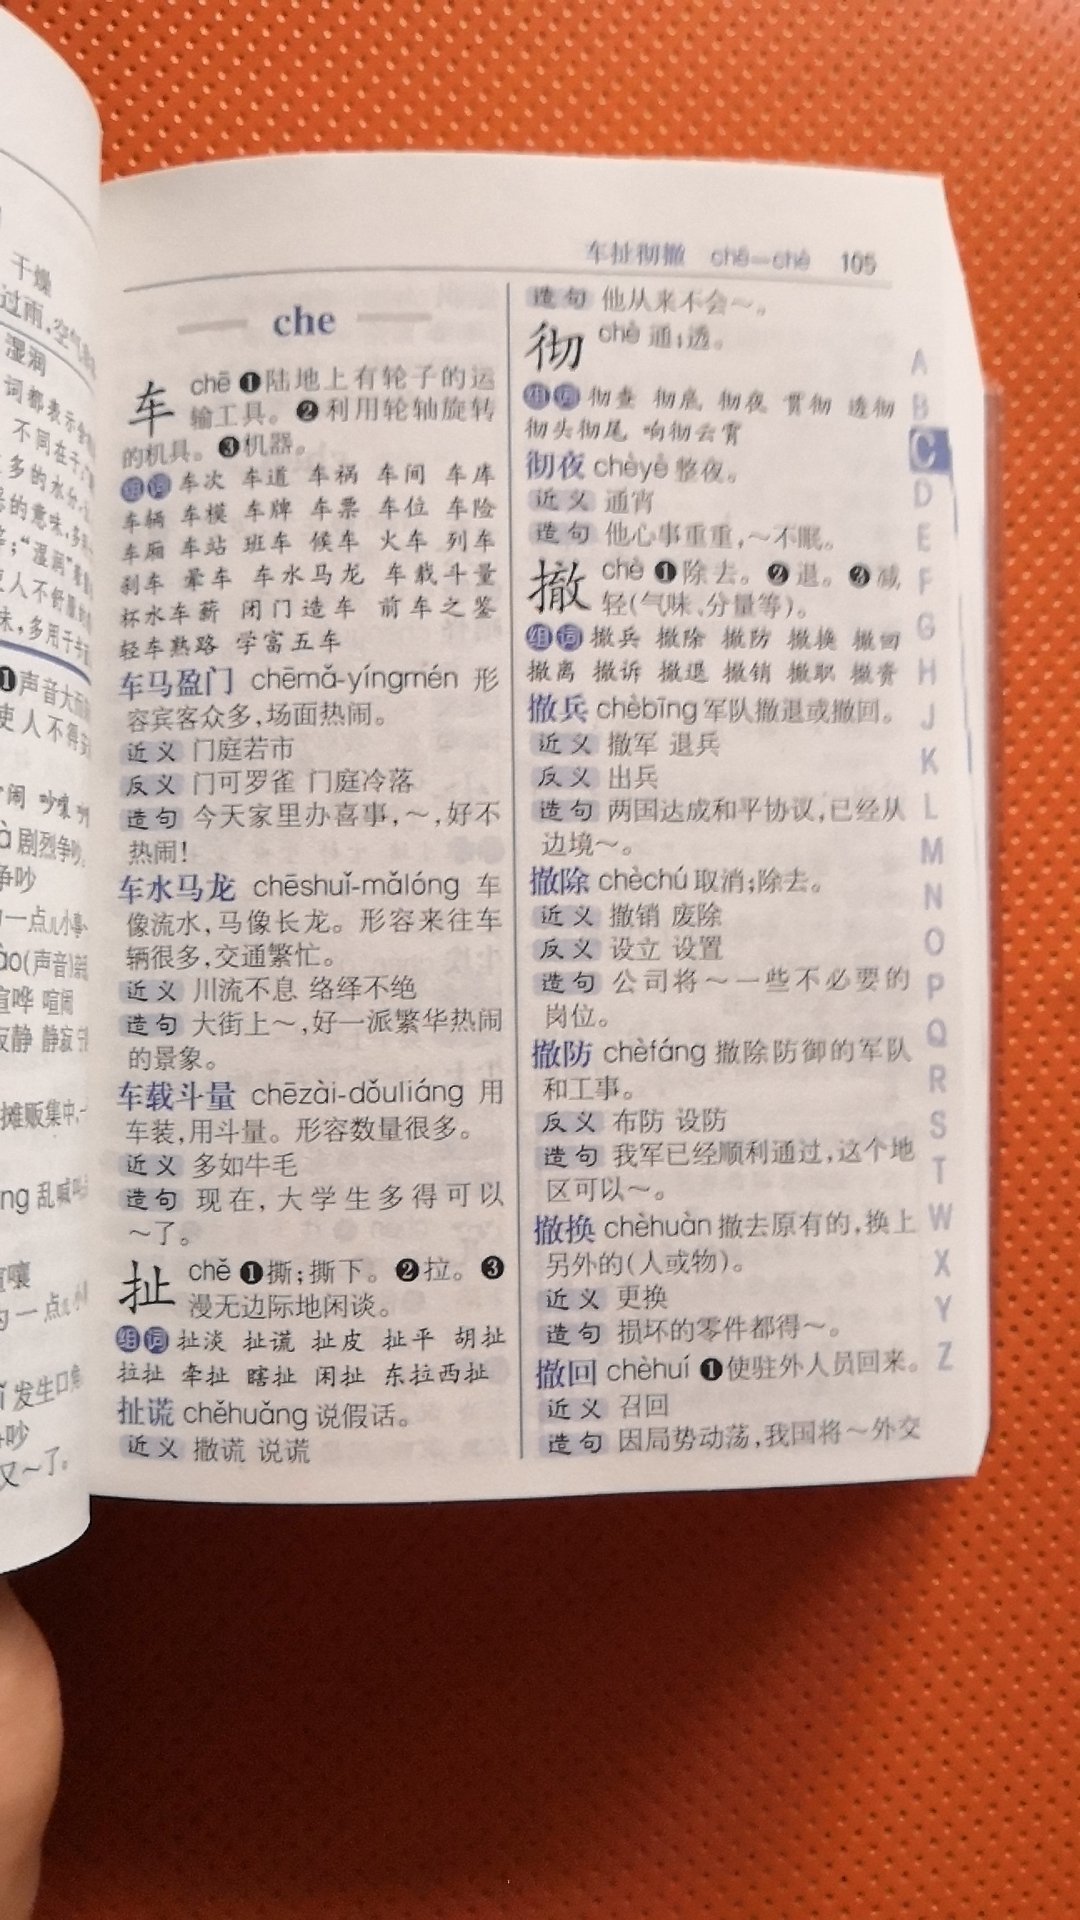 干燥
过雨,空气
湿润
词都表示含
不同在于
多的水分
的意味,多
;"湿润"
使人不舒服
味,多用于
❶声音大而
使人不得安
闹 吵嚷
剧烈争吵
争吵
一点儿小事
(声音)
喧哗 喧闹
寂静 静寂
摊贩集中,
ng乱喊
嚷
一点儿小
发生口角
吵
又~了。
车扯彻撤 chē—chè 105
che
车 chē ❶陆地上有轮子的运
输工具。❷利用轮轴旋转
的机具。❸机器。
组词 车次 车道 车祸 车间 车库
车辆 车模 车牌 车票 车位 车险
车厢 车站 班车 候车 火车 列车
刹车 晕车 车水马龙 车载斗量
杯水车薪 闭门造车 前车之鉴
轻车熟路 学富五车
车马盈门 chēmǎ-yíngmén 形
容宾客众多,场面热闹。
近义 门庭若市
反义 门可罗雀 门庭冷落
造句 今天家里办喜事,~,好不
热闹!
车水马龙 chēshuǐ-mǎlóng 车
像流水,马像长龙。形容来往车
辆很多,交通繁忙。
近义 川流不息 络绎不绝
造句 大街上~,好一派繁华热闹
的景象。
车载斗量 chēzài-dǒuliáng 用
车装,用斗量。形容数量很多。
近义 多如牛毛
造句 现在,大学生多得可以
~了。
扯 chě ❶撕;撕下。❷拉。❸
漫无边际地闲谈。
组词 扯淡 扯谎 扯皮 扯平 胡扯
拉扯 牵扯 瞎扯 闲扯 东拉西扯
扯谎 chěhuǎng 说假话。
近义 撒谎 说谎
造句 他从来不会~。
彻 chè 通;透。
组词 彻查 彻底 彻夜 贯彻 透彻
彻头彻尾 响彻云霄
彻夜 chèyè 整夜。
近义 通宵
造句 他心事重重,~不眠。
撤 chè ❶除去。❷退。❸减
轻(气味、分量等)。
组词 撤兵 撤除 撤防 撤换 撤回
撤离 撤诉 撤退 撤销 撤职 撤资
撤兵 chèbīng 军队撤退或撤回。
近义 撤军 退兵
反义 出兵
造句 两国达成和平协议,已经从
边境~。
撤除 chèchú 取消;除去。
近义 撤销 废除
反义 设立 设置
造句 公司将~一些不必要的
岗位。
撤防 chèfáng 撤除防御的军队
和工事。
反义 布防 设防
造句 我军已经顺利通过,这个地
区可以~。
撤换 chèhuàn 撤去原有的,换上
另外的(人或物)。
近义 更换
造句 损坏的零件都得~。
撤回 chèhuí ❶使驻外人员回来。
近义 召回
造句 因局势动荡,我国将~外交
A
B
C
D
E
F
G
H
J
K
L
M
N
O
P
Q
R
S
T
W
X
Y
Z